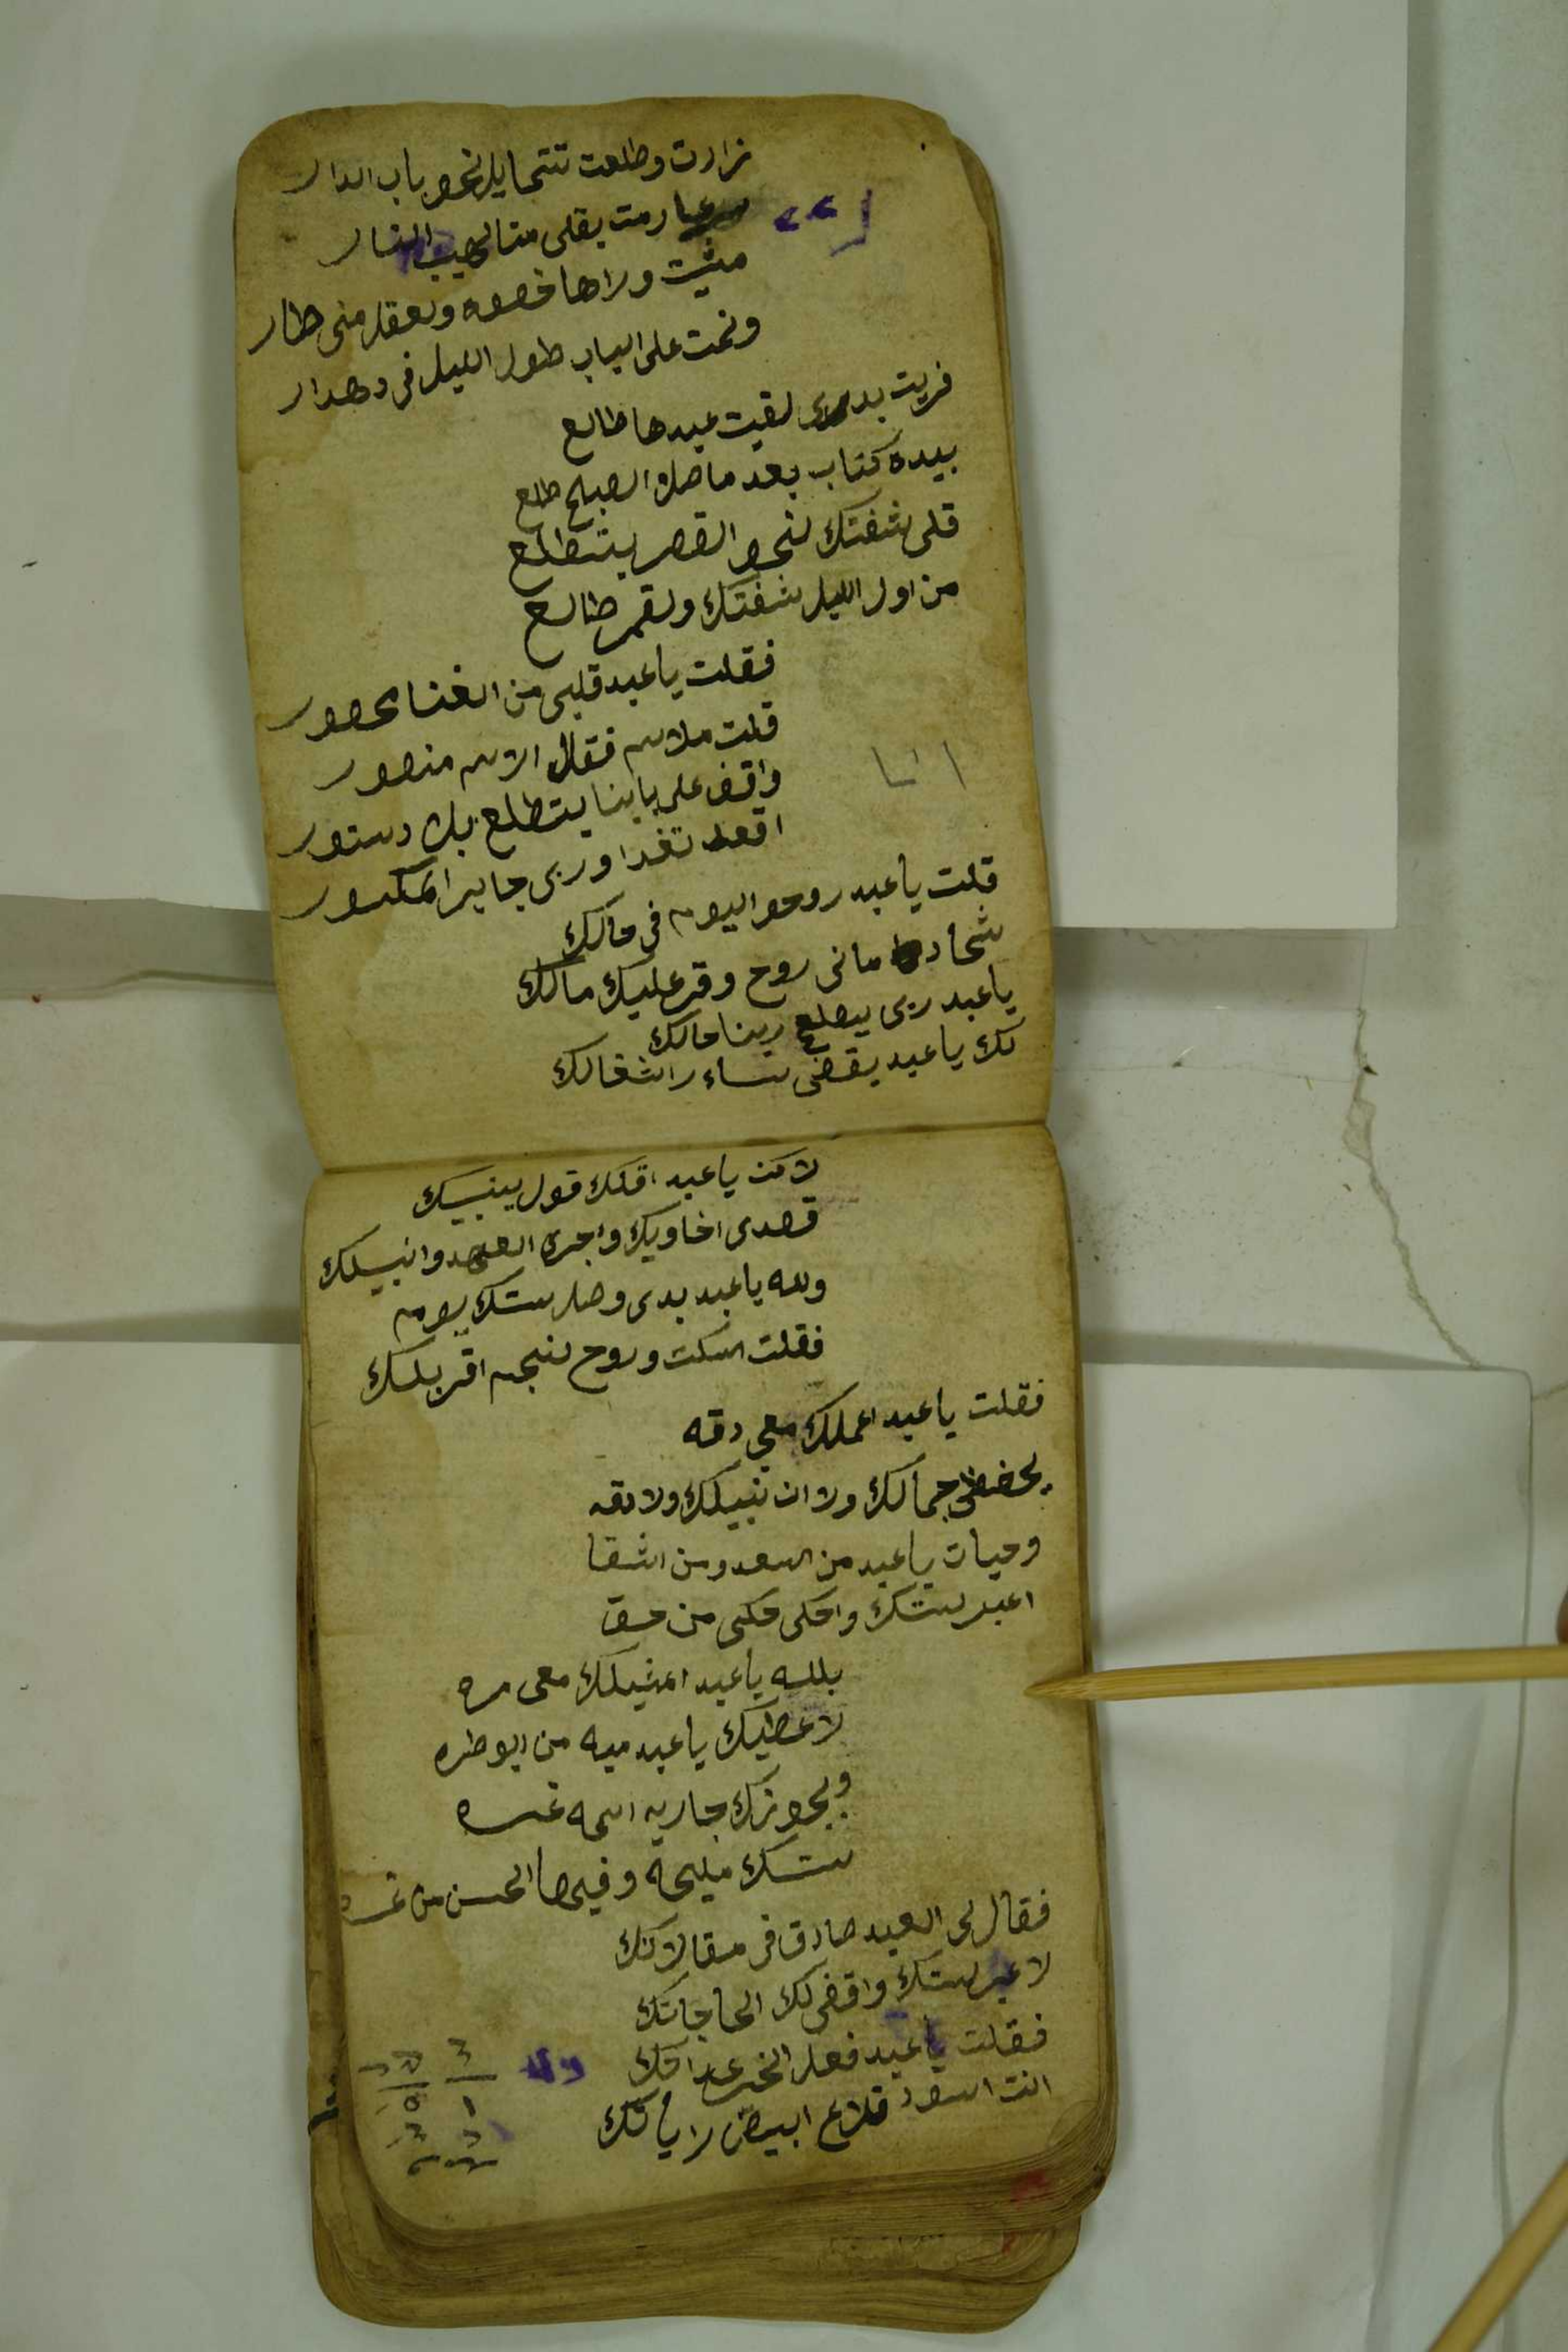 زارت وطلعت تتمايل نحو باب الدار
رمت بقلبى متا لهيب النار
مشيت وراها خصوه ولعقل منى طار
ونمت على الباب طول الليل فى دهدار
فريت بدرى لقيت عبدها طالع
بيده كتاب بعد ماصلا الصبح طلع
قلى شفتك لنحو القصر بتتطلع
من اول الليل شفتك ولقمر طالع
فقلت ياعبد قلبى من الغنا محصور
قلت ملاسم فقال الاسم منصور
واقف على بابنا يتطلع بلا دستور
اقعد تغدا وربى جابر المكسور
انا
قلت ياعبد روحو اليوم فى حالك
شحاد مانى روح وقر عليك مالك
ياعبد ربى يصلح ربنا حالك
لك ياعبد يقضى ساير اشغالك
لاكن ياعبد اقلك قول ينبيك
قصدى اخاويك واجرى العهد وانبيلك
ولله ياعبد بدى وصل ستك يوم
فقلت اسكت وروح لنجم اقربلك
فقلت ياعبد اعملك معى دقه
يحفظ جمالك ولا ان نبيلك ولا دقه
وحيات ياعبد من السعد ومن الشقا
اعبر لستك واحكى حكى من حق
بلله ياعبد امشيلك معى مره
لاعطيك ياعبد ميه من ابو طره
وبجوزك جاريه اسمه غره
ستك مليحه وفيها الحسن من غره
فقال لى العبد صادق فى مقالاتك
لاعبر لستك واقضى لك الحاجاتك
فقلت ياعبد فعل الخير عاداتك
انت اسود قلاع ابيض راياتك